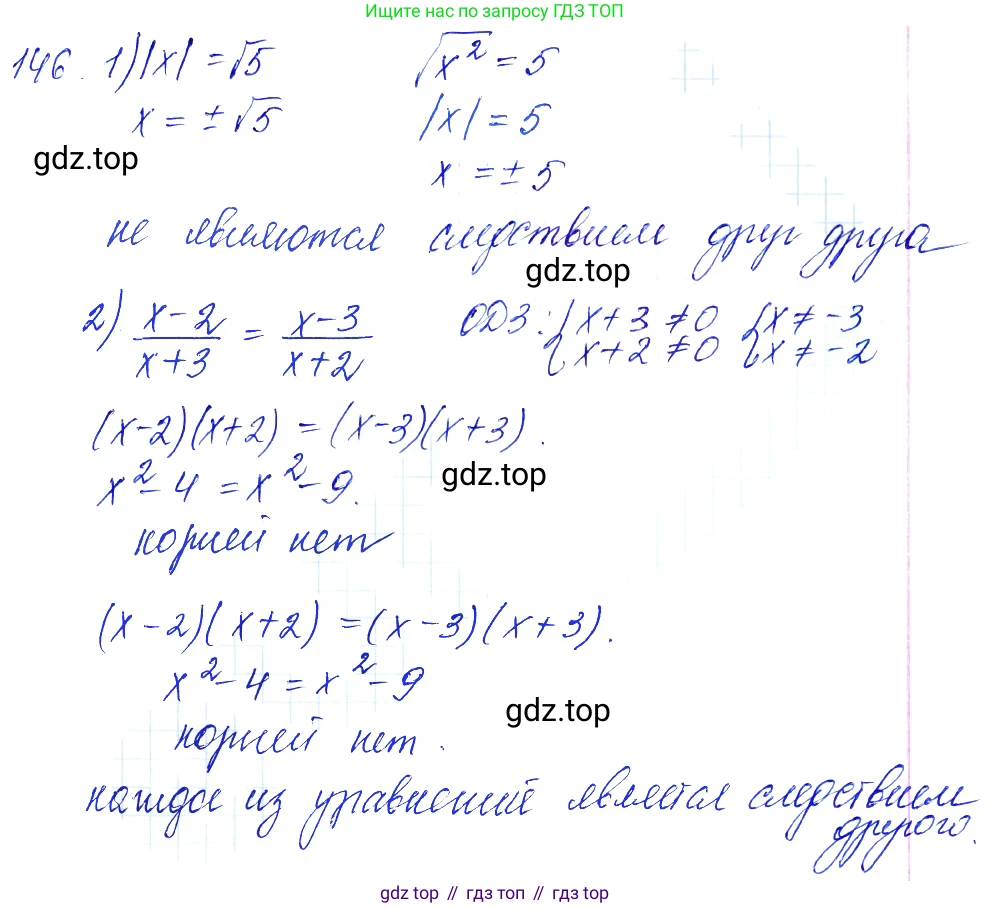 Ищите нас по запросу ГДЗ ТОП
146. 1) |x| = √5     √x² = 5
x = ±√5     |x| = 5
gdz.top
x = ±5
не являются следствием друг друга
gdz.top
2) (x-2)/(x+3) = (x-3)/(x+2)     ОДЗ: { x+3 ≠ 0   { x ≠ -3
{ x+2 ≠ 0   { x ≠ -2
(x-2)(x+2) = (x-3)(x+3).
x² - 4 = x² - 9.
gdz.top
корней нет
(x-2)(x+2) = (x-3)(x+3).
x² - 4 = x² - 9
gdz.top
корней нет.
каждое из уравнений является следствием
другого.
gdz top // гдз топ // гдз top